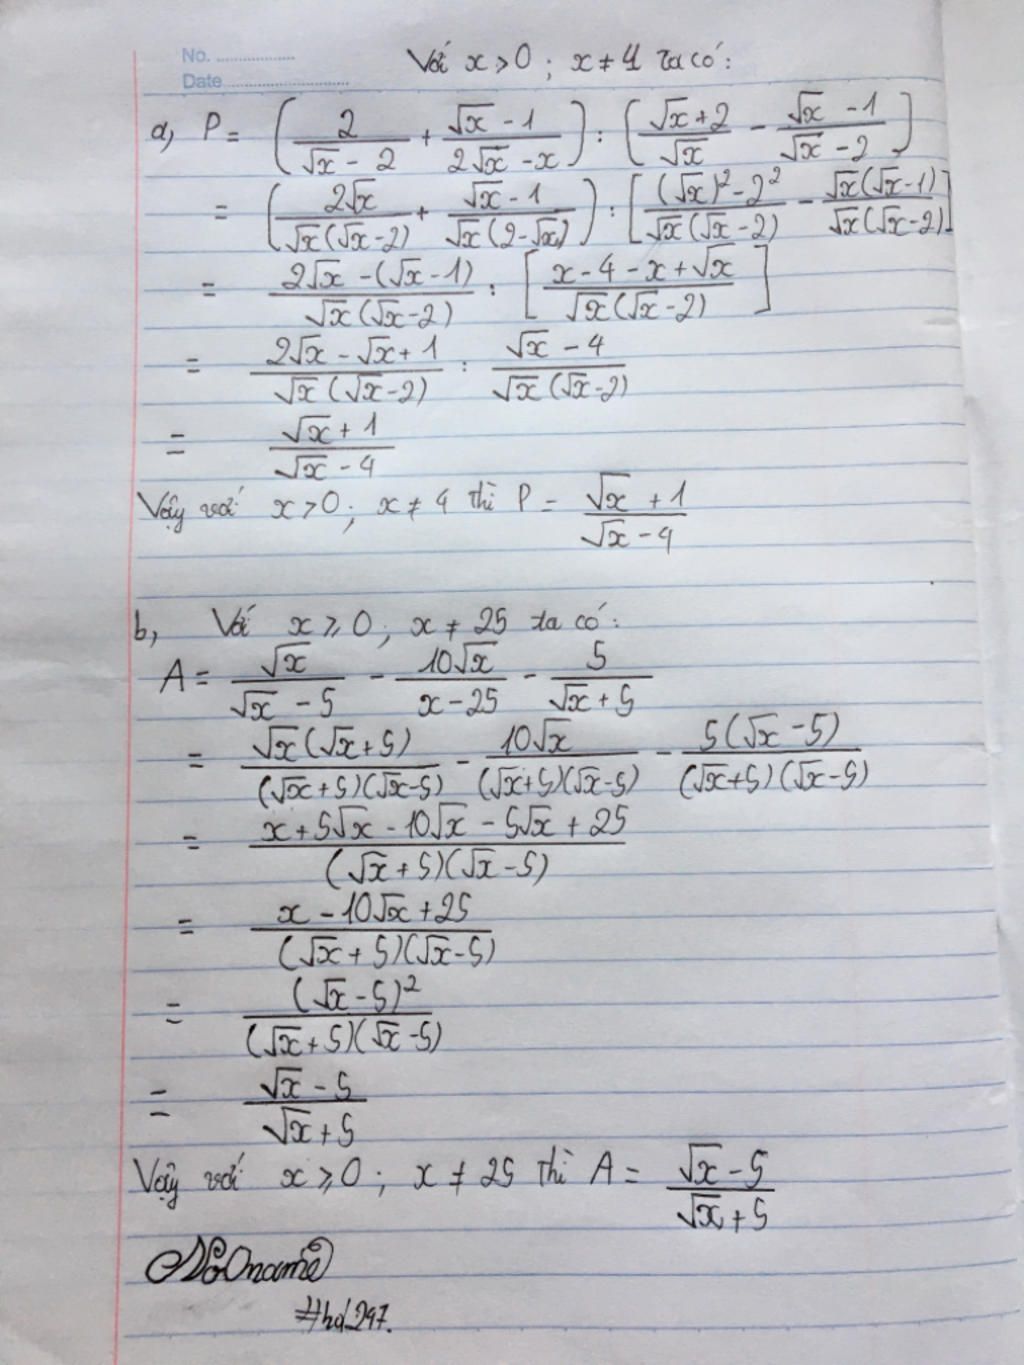 No. ....................
Với x > 0 ; x ≠ 4 ta có :
Date ..............................
a, P = (2/(√x - 2) + (√x - 1)/(2√x - x)) : [(√x + 2)/√x - (√x - 1)/(√x - 2)]
= (2√x/(√x(√x - 2)) + (√x - 1)/(√x(2 - √x))) : [((√x)² - 2²)/(√x(√x - 2)) - √x(√x - 1)/(√x(√x - 2))]
= (2√x - (√x - 1))/(√x(√x - 2)) : [(x - 4 - x + √x)/(√x(√x - 2))]
= (2√x - √x + 1)/(√x(√x - 2)) : (√x - 4)/(√x(√x - 2))
= (√x + 1)/(√x - 4)
Vậy với x > 0 ; x ≠ 4 thì P = (√x + 1)/(√x - 4)
b, Với x ≥ 0 ; x ≠ 25 ta có :
A = √x/(√x - 5) - 10√x/(x - 25) - 5/(√x + 5)
= √x(√x + 5)/((√x + 5)(√x - 5)) - 10√x/((√x + 5)(√x - 5)) - 5(√x - 5)/((√x + 5)(√x - 5))
= (x + 5√x - 10√x - 5√x + 25)/((√x + 5)(√x - 5))
= (x - 10√x + 25)/((√x + 5)(√x - 5))
= (√x - 5)²/((√x + 5)(√x - 5))
= (√x - 5)/(√x + 5)
Vậy với x ≥ 0 ; x ≠ 25 thì A = (√x - 5)/(√x + 5)
#hd247.